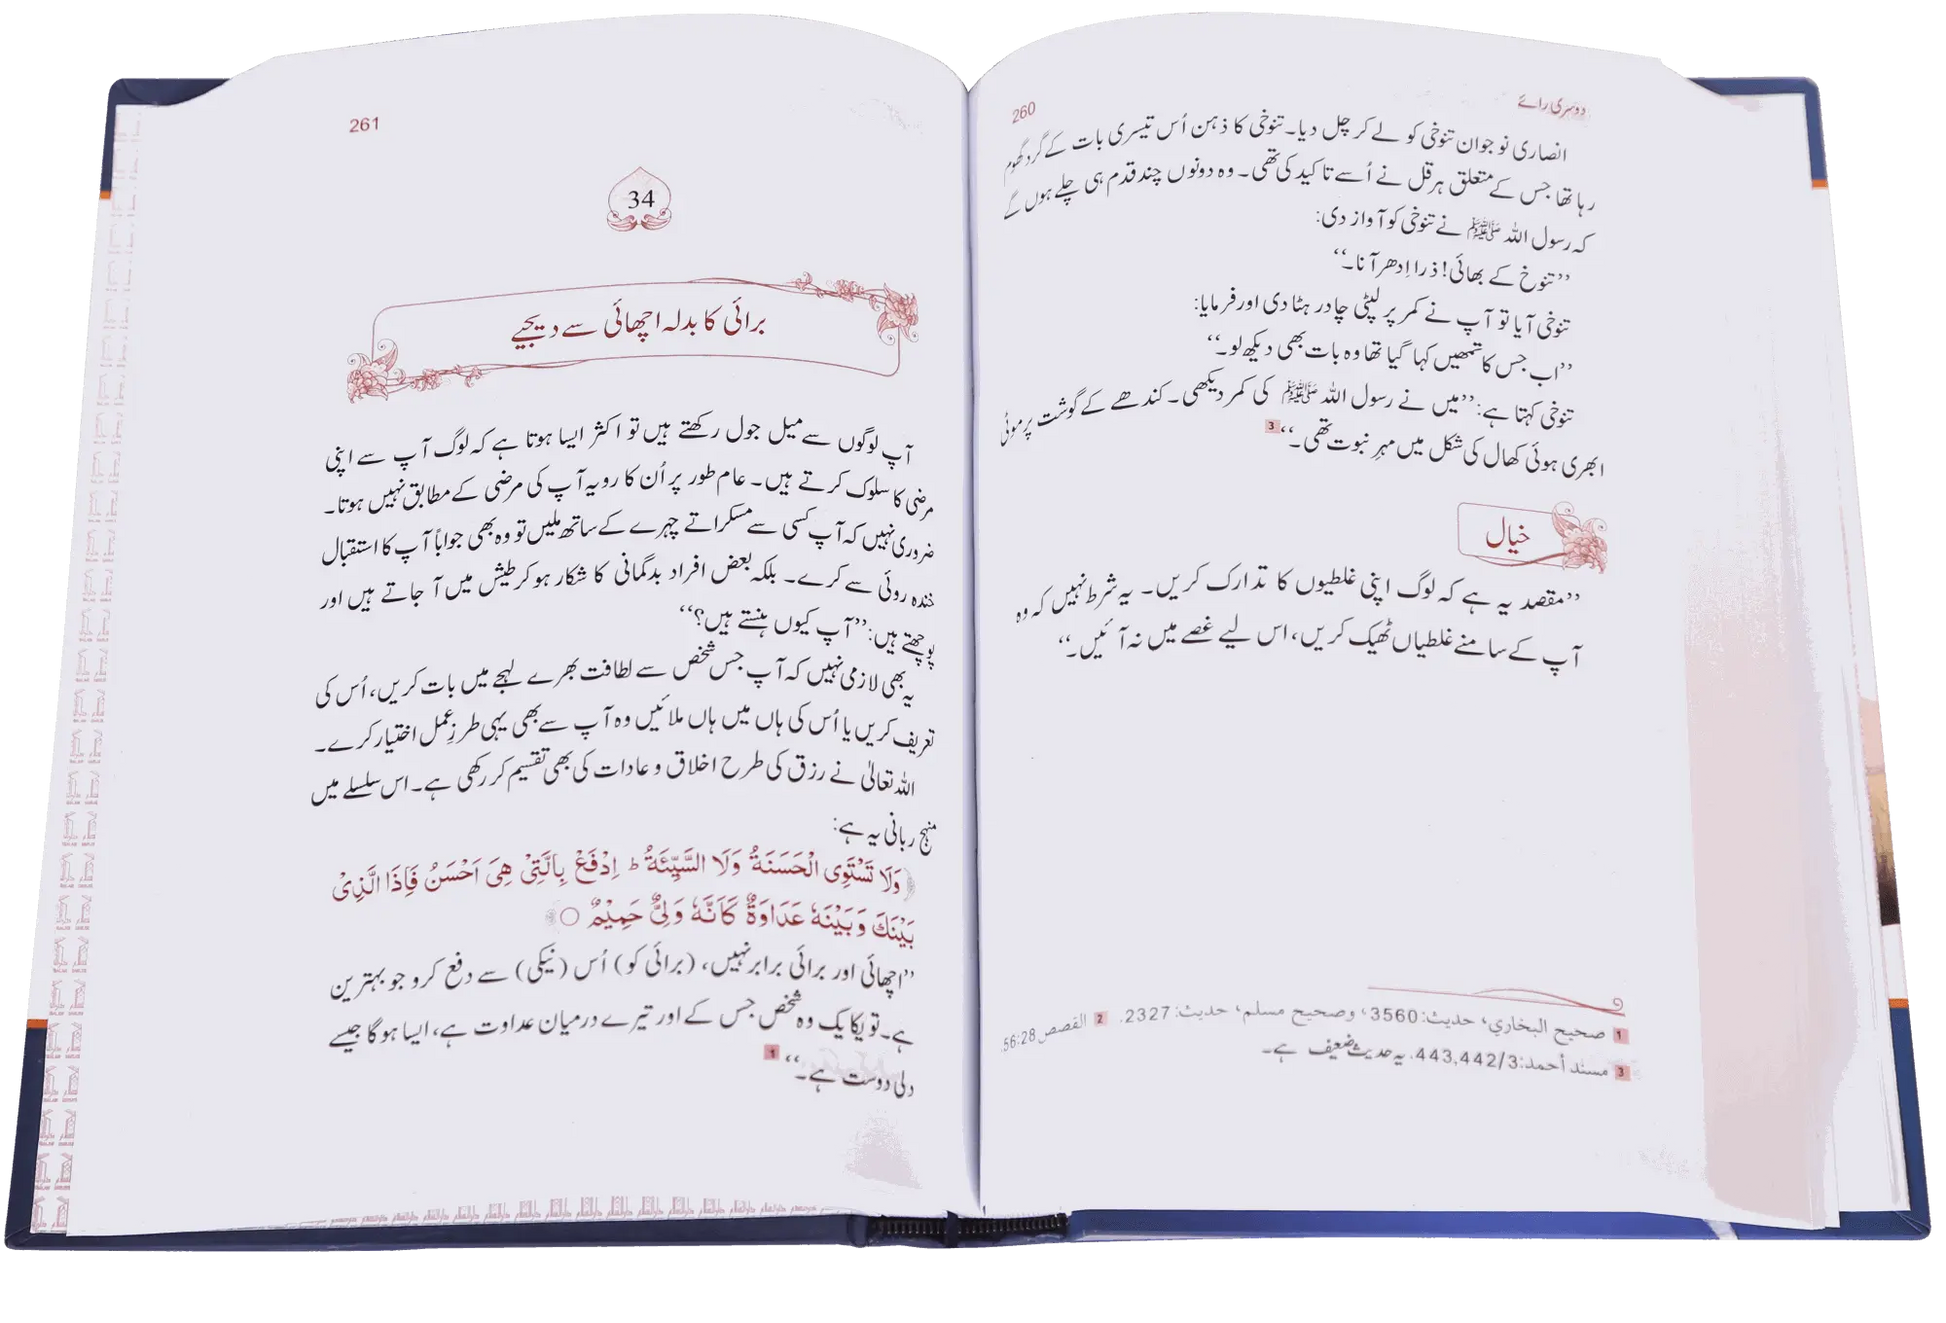 دوسری رائے
260
انصاری نوجوان تنوخی کو لے کر چل دیا۔ تنوخی کا ذہن اُس تیسری بات کے گرد گھوم
رہا تھا جس کے متعلق ہرقل نے اُسے تاکید کی تھی۔ وہ دونوں چند قدم ہی چلے ہوں گے
کہ رسول اللہ ﷺ نے تنوخی کو آواز دی:
’’تنوخ کے بھائی! ذرا اِدھر آنا۔‘‘
تنوخی آیا تو آپ نے کمر پر لپٹی چادر ہٹا دی اور فرمایا:
’’اب جس کا تمھیں کہا گیا تھا وہ بات بھی دیکھ لو۔‘‘
تنوخی کہتا ہے: ’’میں نے رسول اللہ ﷺ کی کمر دیکھی۔ کندھے کے گوشت پر موٹی
ابھری ہوئی کھال کی شکل میں مہرِ نبوت تھی۔‘‘ 3
خیال
’’مقصد یہ ہے کہ لوگ اپنی غلطیوں کا تدارک کریں۔ یہ شرط نہیں کہ وہ
آپ کے سامنے غلطیاں ٹھیک کریں، اس لیے غصے میں نہ آئیں۔‘‘
1 صحیح البخاري، حدیث: 3560، وصحیح مسلم، حدیث: 2327. 2 القصص 56:28.
3 مسند أحمد: 443,442/3. یہ حدیث ضعیف ہے۔
261
34
برائی کا بدلہ اچھائی سے دیجیے
آپ لوگوں سے میل جول رکھتے ہیں تو اکثر ایسا ہوتا ہے کہ لوگ آپ سے اپنی
مرضی کا سلوک کرتے ہیں۔ عام طور پر اُن کا رویہ آپ کی مرضی کے مطابق نہیں ہوتا۔
ضروری نہیں کہ آپ کسی سے مسکراتے چہرے کے ساتھ ملیں تو وہ بھی جواباً آپ کا استقبال
خندہ روئی سے کرے۔ بلکہ بعض افراد بدگمانی کا شکار ہو کر طیش میں آ جاتے ہیں اور
پوچھتے ہیں: ’’آپ کیوں ہنستے ہیں؟‘‘
یہ بھی لازمی نہیں کہ آپ جس شخص سے لطافت بھرے لہجے میں بات کریں، اُس کی
تعریف کریں یا اُس کی ہاں میں ہاں ملائیں وہ آپ سے بھی یہی طرزِ عمل اختیار کرے۔
اللہ تعالیٰ نے رزق کی طرح اخلاق و عادات کی بھی تقسیم کر رکھی ہے۔ اس سلسلے میں
منہج ربانی یہ ہے:
﴿وَلَا تَسْتَوِی الْحَسَنَةُ وَلَا السَّیِّئَةُ ط اِدْفَعْ بِالَّتِیْ هِیَ اَحْسَنُ فَاِذَا الَّذِیْ
بَیْنَكَ وَبَیْنَهٗ عَدَاوَةٌ کَاَنَّهٗ وَلِیٌّ حَمِیْمٌ ○﴾
’’اچھائی اور برائی برابر نہیں، (برائی کو) اُس (نیکی) سے دفع کرو جو بہترین
ہے۔ تو یکایک وہ شخص جس کے اور تیرے درمیان عداوت ہے، ایسا ہو گا جیسے
دلی دوست ہے۔‘‘ 1